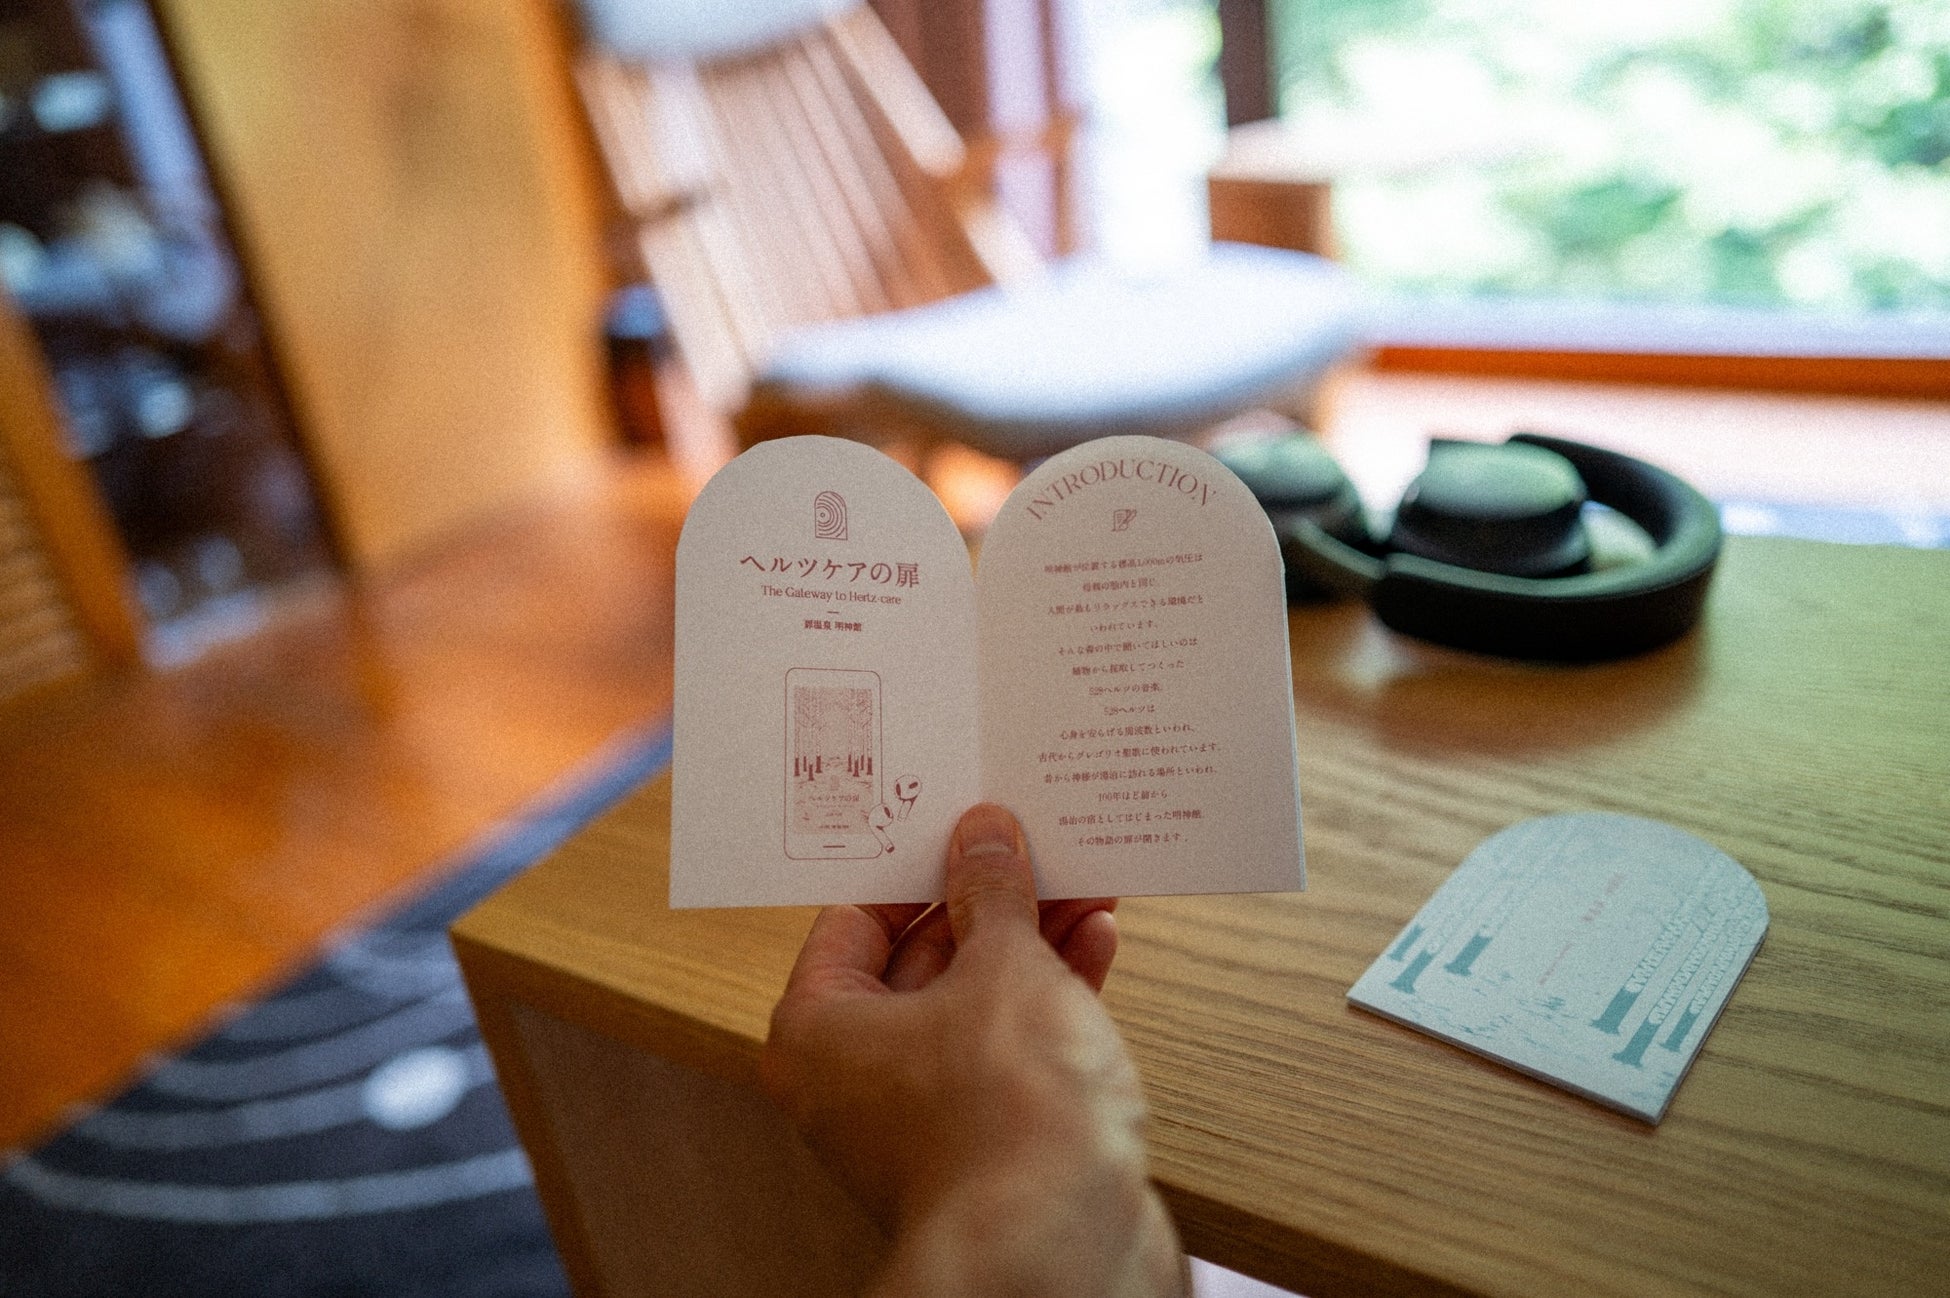 ヘルツケアの扉
The Gateway to Hertz-care
扉温泉 明神館
ヘルツケアの扉
INTRODUCTION
明神館が位置する標高1,000mの気圧は
母親の胎内と同じ、
人間が最もリラックスできる環境だと
いわれています。
そんな森の中で聞いてほしいのは
植物から採取してつくった
528ヘルツの音楽。
528ヘルツは
心身を安らげる周波数といわれ、
古代からグレゴリオ聖歌に使われています。
昔から神様が湯治に訪れる場所といわれ、
100年ほど前から
湯治の宿としてはじまった明神館。
その物語の扉が開きます。